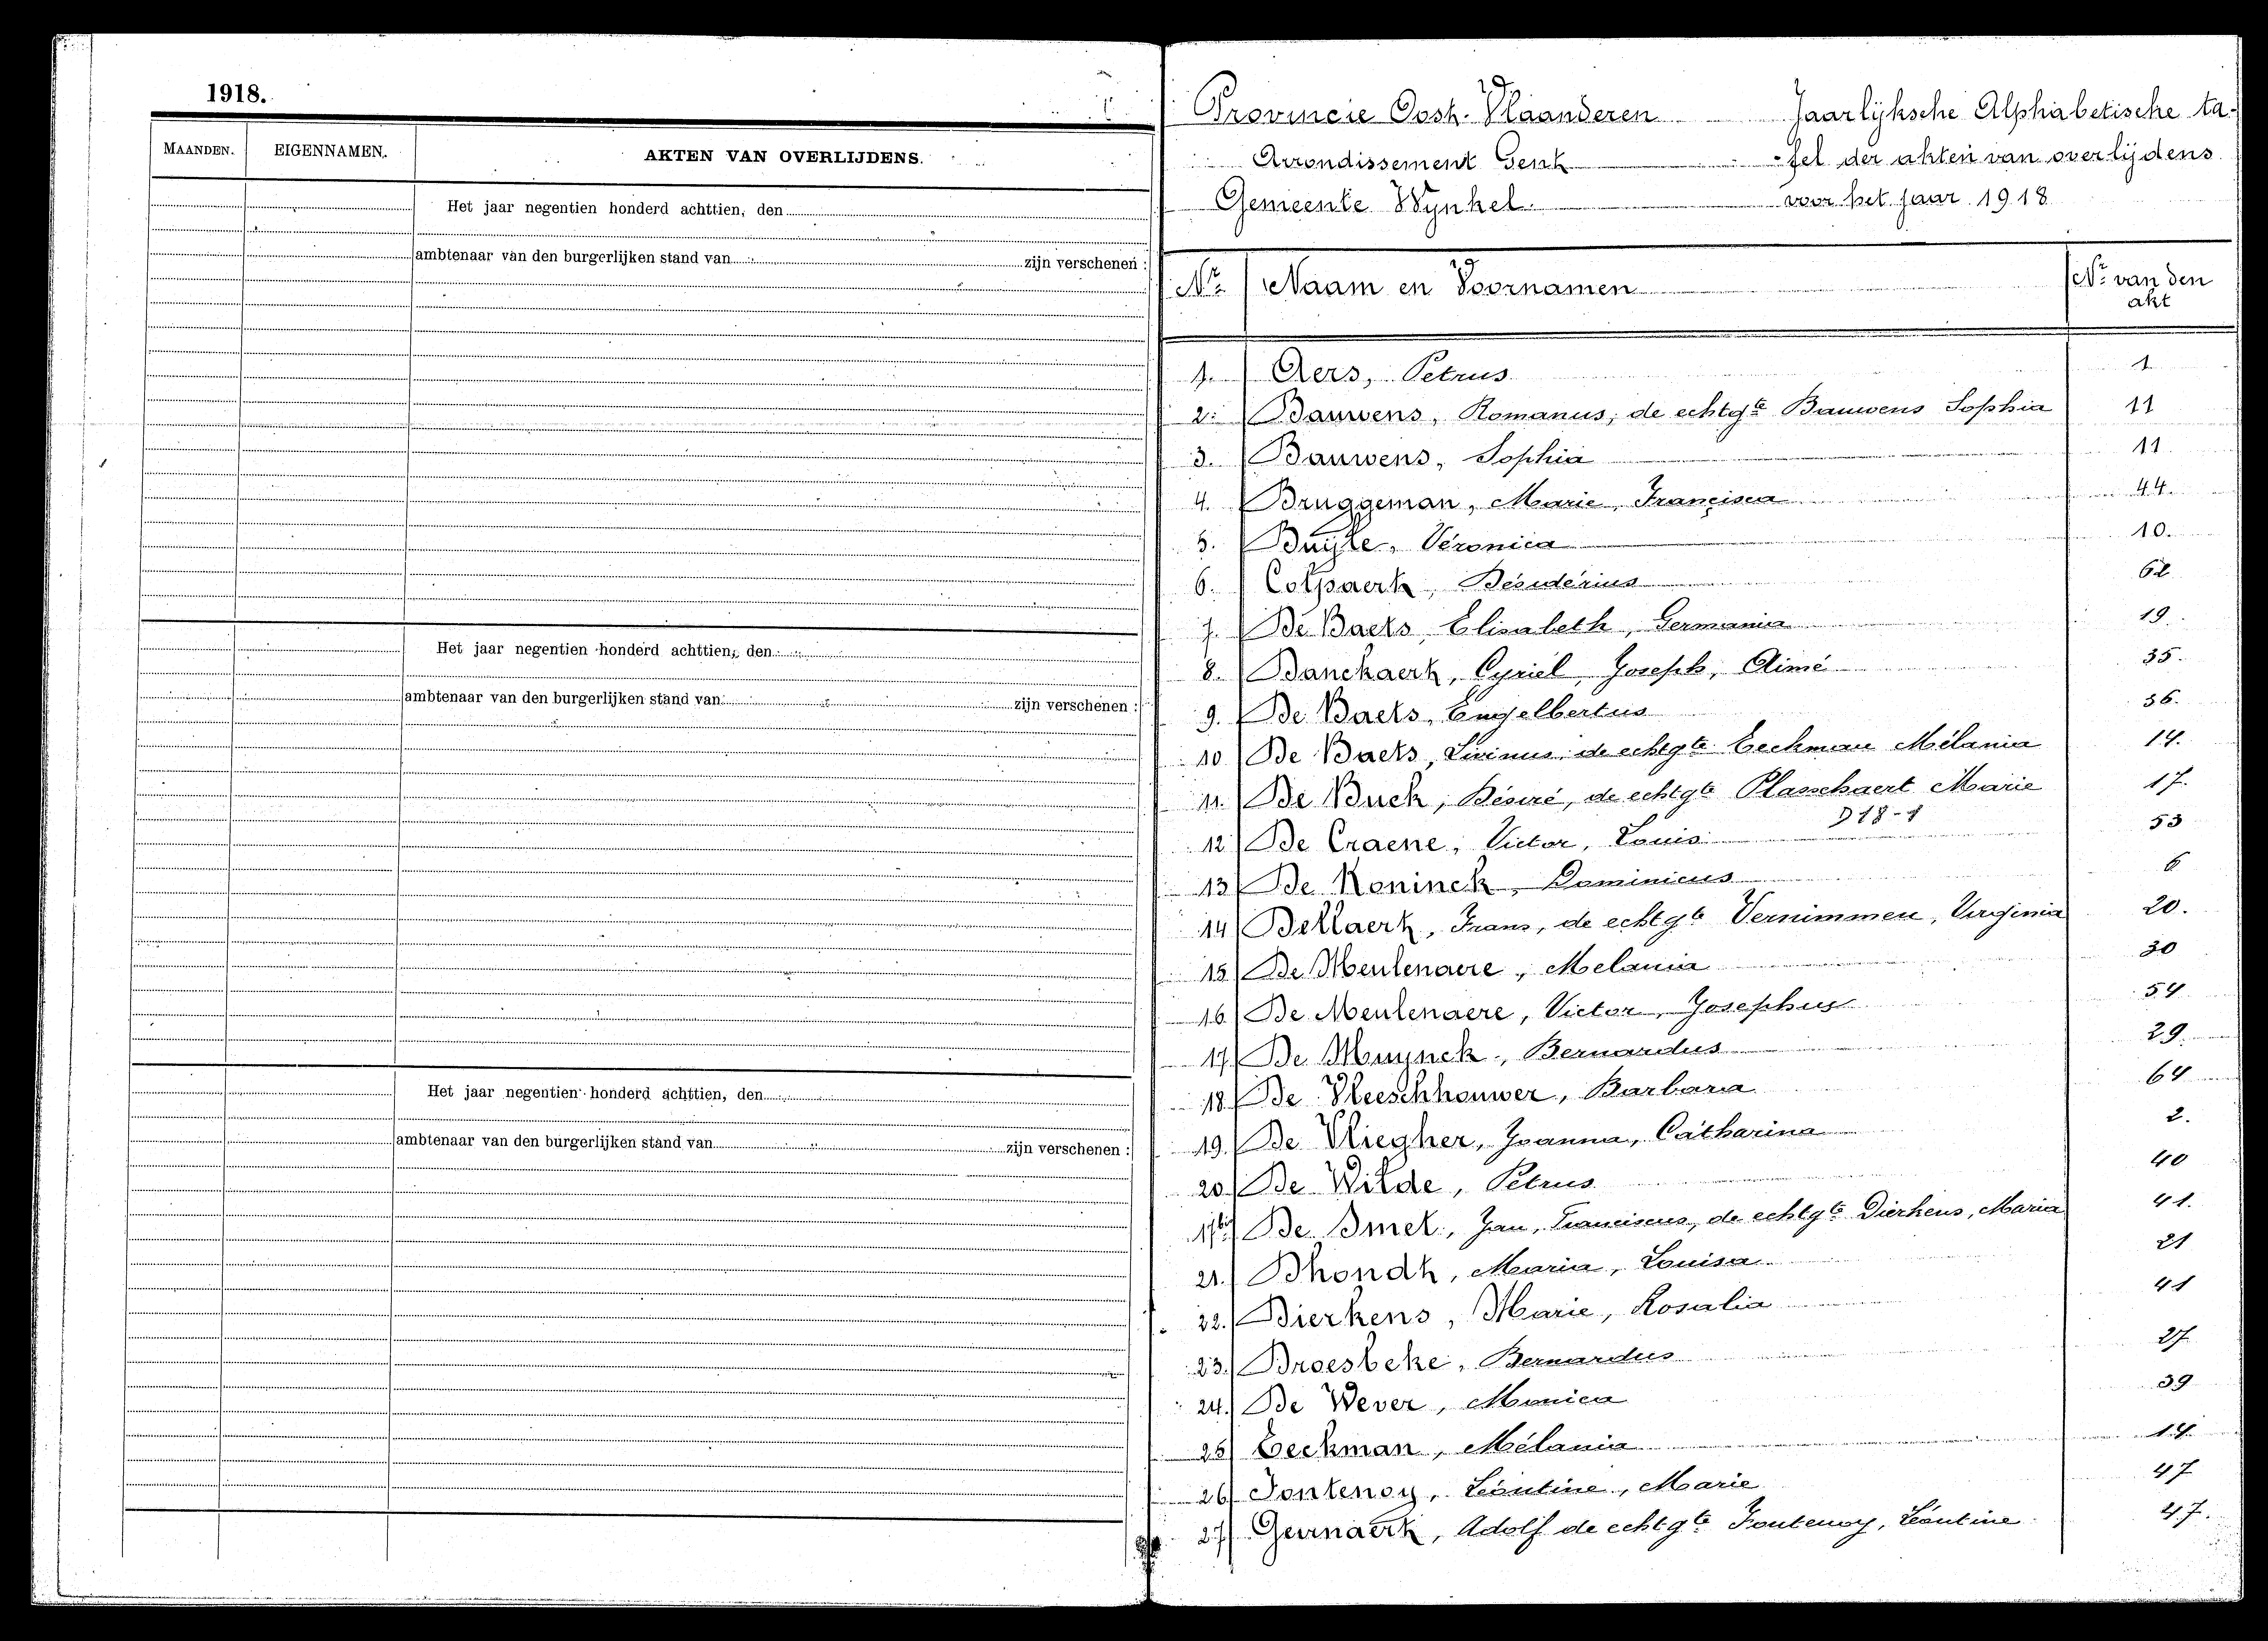 1918.
MAANDEN. EIGENNAMEN. AKTEN VAN OVERLIJDENS.
Het jaar negentien honderd achttien, den
ambtenaar van den burgerlijken stand van zijn verschenen :
Het jaar negentien honderd achttien, den
ambtenaar van den burgerlijken stand van zijn verschenen :
Het jaar negentien honderd achttien, den
ambtenaar van den burgerlijken stand van zijn verschenen :
19
Provincie Oost-Vlaanderen Jaarlijksche Alphabetische ta-
Arrondissement Gent -fel der akten van overlijdens
Gemeente Wynkel. voor het jaar 1918
Nr. Naam en Voornamen Nr. van den
akt
1. Aers, Petrus 1
2. Bauwens, Romanus, de echtgte Bauwens Sophia 11
3. Bauwens, Sophia 11
4. Bruggeman, Marie, Francisca 44.
5. Buijle, Veronica 10.
6. Colpaert, Desiderius 62
7. De Baets, Elisabeth, Germania 19
8. Danckaert, Cyriel, Joseph, Aimé 35.
9. De Baets, Engelbertus 36.
10 De Baets, Livinus de echtgte Eeckman Mélania 14.
11. De Buck, Désiré, de echtgte Plasschaert Marie 17.
D18-1
12 De Craene, Victor, Louis 53
13 De Koninck, Dominicus 6
14 Dellaert, Frans, de echtgte Vernimmen, Virginia 20.
15 De Meulenaere, Melania 30
16 De Meulenaere, Victor, Josephus 54
17 De Muynck, Bernardus 29.
18 De Vleeschhouwer, Barbara 64
19. De Vliegher, Joanna, Catharina 2.
20. De Wilde, Petrus 40
17bis De Smet, Jan, Franciscus, de echtgte Dierkens, Maria 41.
21. Dhondt, Maria, Louisa 21
22. Dierkens, Marie, Rosalia 41
23. Droesbeke, Bernardus 27
24. De Wever, Monica 39
25 Eeckman, Mélania 14
26 Fontenoy, Léontine, Marie 47
27 Geirnaert, Adolf de echtgte Fontenoy, Léontine 47.